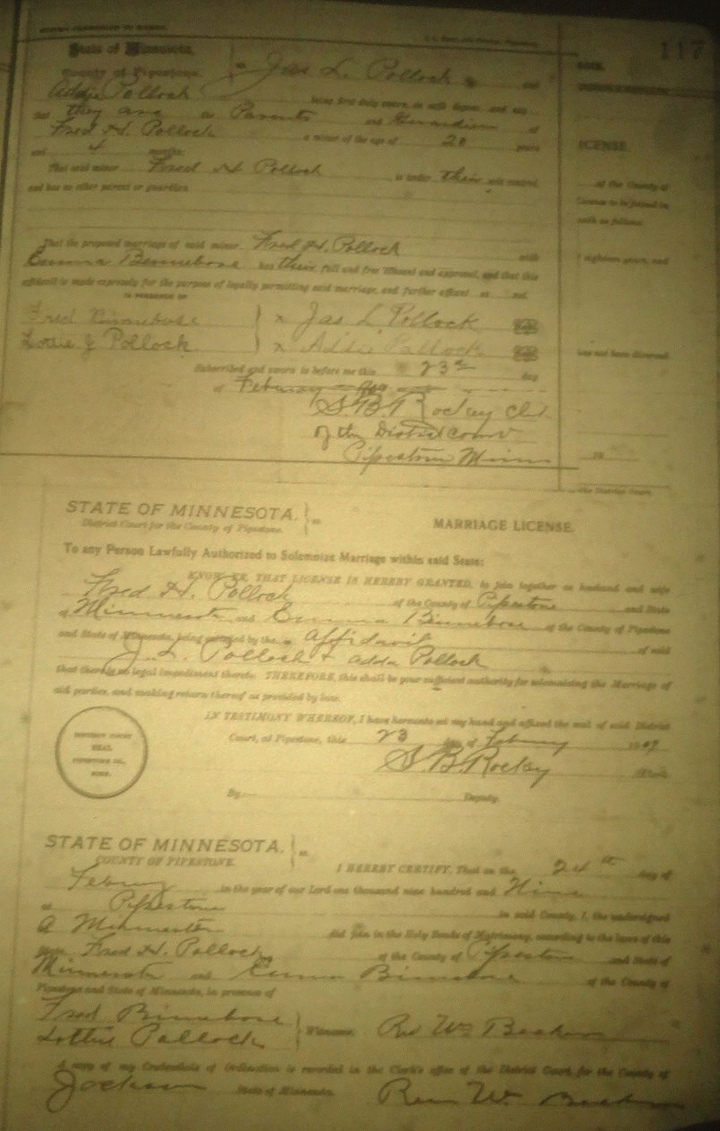 117
State of Minnesota,
County of Pipestone.
Jas L. Pollock and
Addie Pollock being first duly sworn, on oath depose and say
that they are as Parents and Guardians of
Fred H Pollock a minor of the age of 20 years
and 4 months;
That said minor Fred H Pollock is under their sole control,
and has no other parent or guardian.
LICENSE.
of the County of
License to be joined in
with as follows:
That the proposed marriage of said minor Fred H. Pollock with
Emma Binnebose has their full and free assent and approval, and that this
affidavit is made expressly for the purpose of legally permitting said marriage, and further affiant say not.
IN PRESENCE OF
Fred Binnebose x Jas L Pollock
Lottie J Pollock x Addie Pollock
Subscribed and sworn to before me this 23 day
of February 1909
S. B. Rockey Clk
of the District Court
Pipestone Minn
STATE OF MINNESOTA, ss.
District Court for the County of Pipestone.
MARRIAGE LICENSE.
To any Person Lawfully Authorized to Solemnize Marriage within said State:
KNOW YE, THAT LICENSE IS HEREBY GRANTED, to join together as husband and wife
Fred H. Pollock of the County of Pipestone and State
of Minnesota and Emma Binnebose of the County of Pipestone
and State of Minnesota, being satisfied by the Affidavit of said
J. L. Pollock & Adda Pollock
that there is no legal impediment thereto. THEREFORE, this shall be your sufficient authority for solemnizing the Marriage of
said parties, and making return thereof as provided by law.
IN TESTIMONY WHEREOF, I have hereunto set my hand and affixed the seal of said District
Court, at Pipestone, this 23 day of February 1909
DISTRICT COURT
SEAL
PIPESTONE CO.,
MINN.
S. B. Rockey Clerk
By Deputy.
STATE OF MINNESOTA, ss.
COUNTY OF PIPESTONE.
I HEREBY CERTIFY, That on the 24th day of
Februry in the year of our Lord one thousand nine hundred and Nine
at Pipestone in said County, I, the undersigned
A Minnester did join in the Holy Bonds of Matrimony, according to the laws of this
State Fred H. Pollock of the County of Pipestone and State of
Minnesota and Emma Binnebose of the County of
Pipestone and State of Minnesota, in presence of
Fred Binnebose
Lottie Pollock Witnesses. Rev Wm
A copy of my Credentials of Ordination is recorded in the Clerk's office of the District Court for the County of
Jackson State of Minnesota. Rev W.